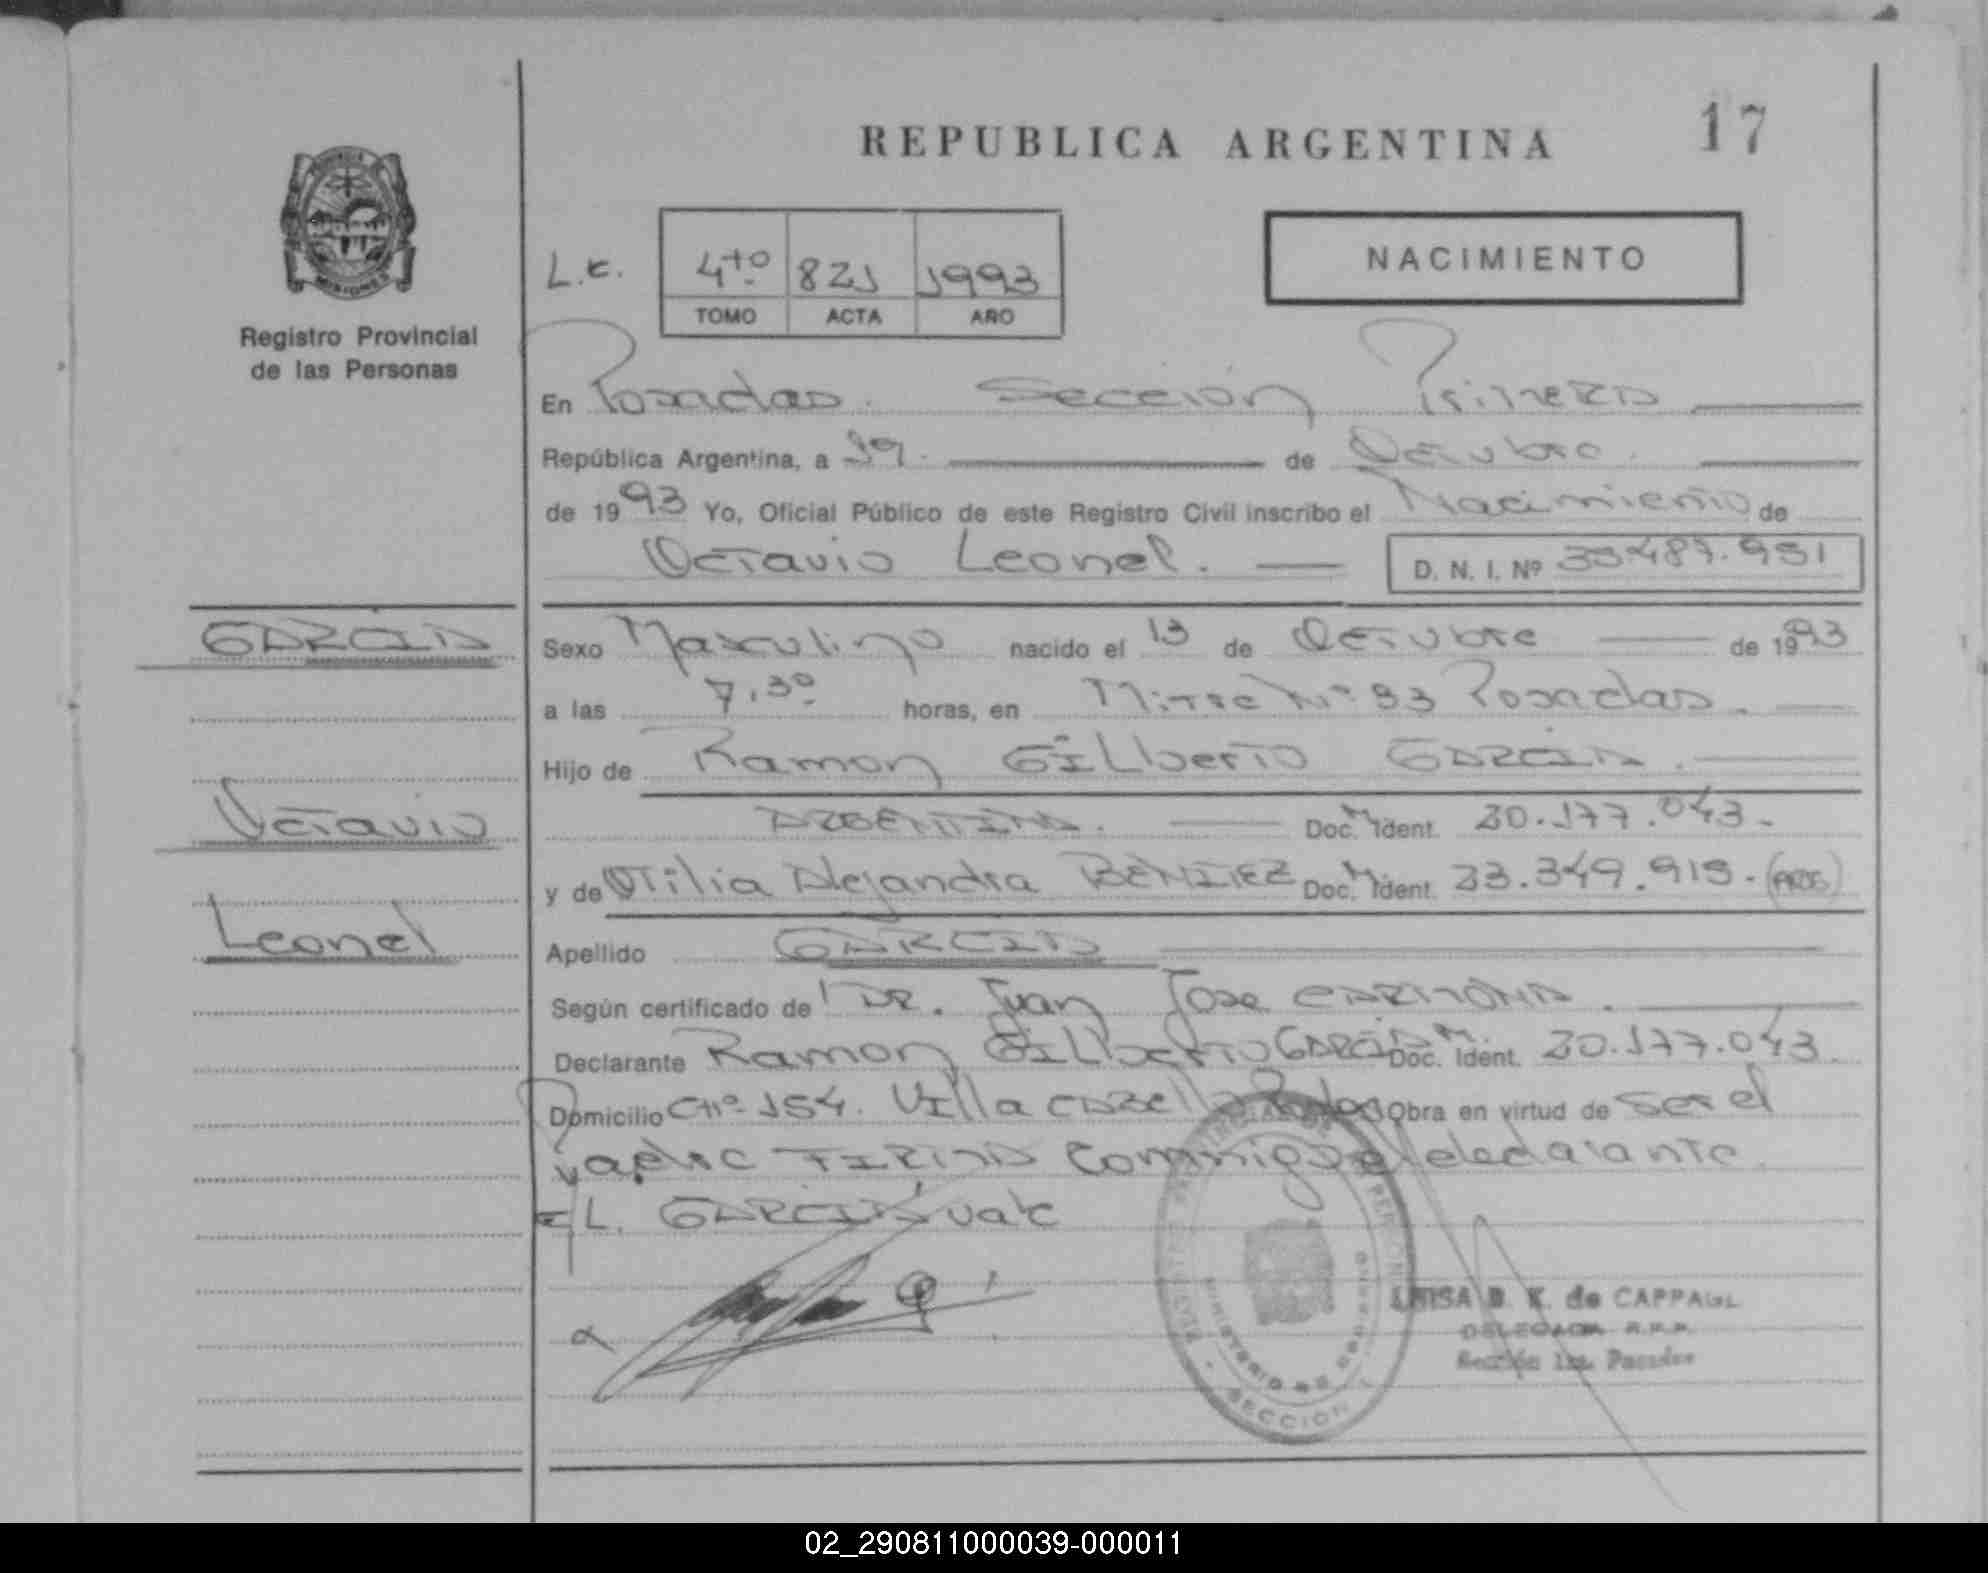 17
REPUBLICA ARGENTINA
MISIONES
Registro Provincial
de las Personas
4to 821 1993
TOMO ACTA AÑO
NACIMIENTO
En Posadas. Sección Primera
República Argentina, a 19. de Octubre.
de 1993 Yo, Oficial Público de este Registro Civil inscribo el Nacimiento de
Octavio Leonel.
D. N. I. Nº
GARCIA
Sexo Masculino nacido el 13 de Octubre de 1993
a las 7,30 horas, en Mitre Nº 93 Posadas.
Hijo de Ramon Gilberto GARCIA.
Octavio
ARGENTINA. Doc. Ident. 20.177.043.
y de Otilia Alejandra BENITEZ Doc. Ident. 23.349.919. (ARG)
Leonel
Apellido GARCIA
Según certificado de DR. Juan Jose CARMONA.
Declarante Ramon Gilberto GARCIA Doc. M. Ident. 20.177.043.
Domicilio CHº 154. Villa CABELLO Posadas Obra en virtud de ser el
padre FIRMA conmigo el declarante
E/L. GARCIA vale
MINISTERIO DE GOBIERNO
SECCIÓN 1
LUISA B. K. de CAPPAGL
DELEGADA R.P.P.
Sección 1ra. Posadas
02_290811000039-000011